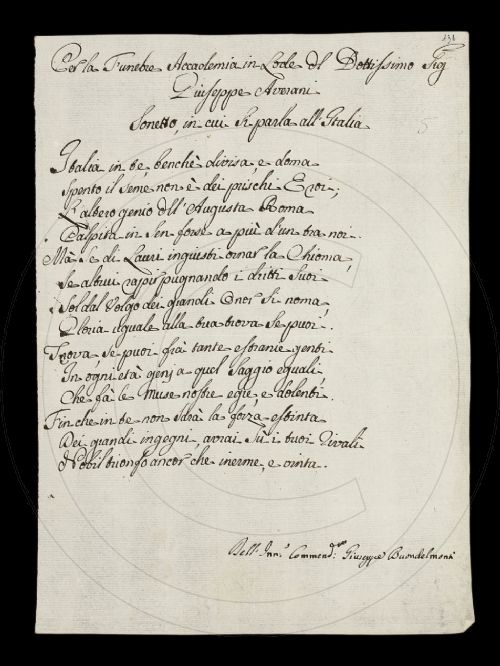 131
Per la Funebre Accademia in Lode dl Dottissimo Sig
Giuseppe Averani
Sonetto, in cui si parla all' Italia
Italia in te, benchè divisa, e doma
Spento il seme non è dei prischi Eroi;
L'albero genio dell' Augusta Roma
Palpita in sen forse a più d'un tra noi.
Mà se di Lauri ingiusti ornar la Chioma,
Se altrui rapir pugnando i dritti suoi
Sol dal Volgo dei grandi Onor si noma,
Gloria uguale alla tua trova se puoi.
Trova se puoi frà tante estranie genti
In ogni età gens a quel Saggio eguali,
Che fà le Muse nostre egre, e dolenti.
Finche in te non sarà la forza estinta
Dei grandi ingegni, avrai sù i tuoi rivali
Nobil trionfo ancor che inerme, e vinta.
Dell' Commend. Giuseppe Buondelmonti